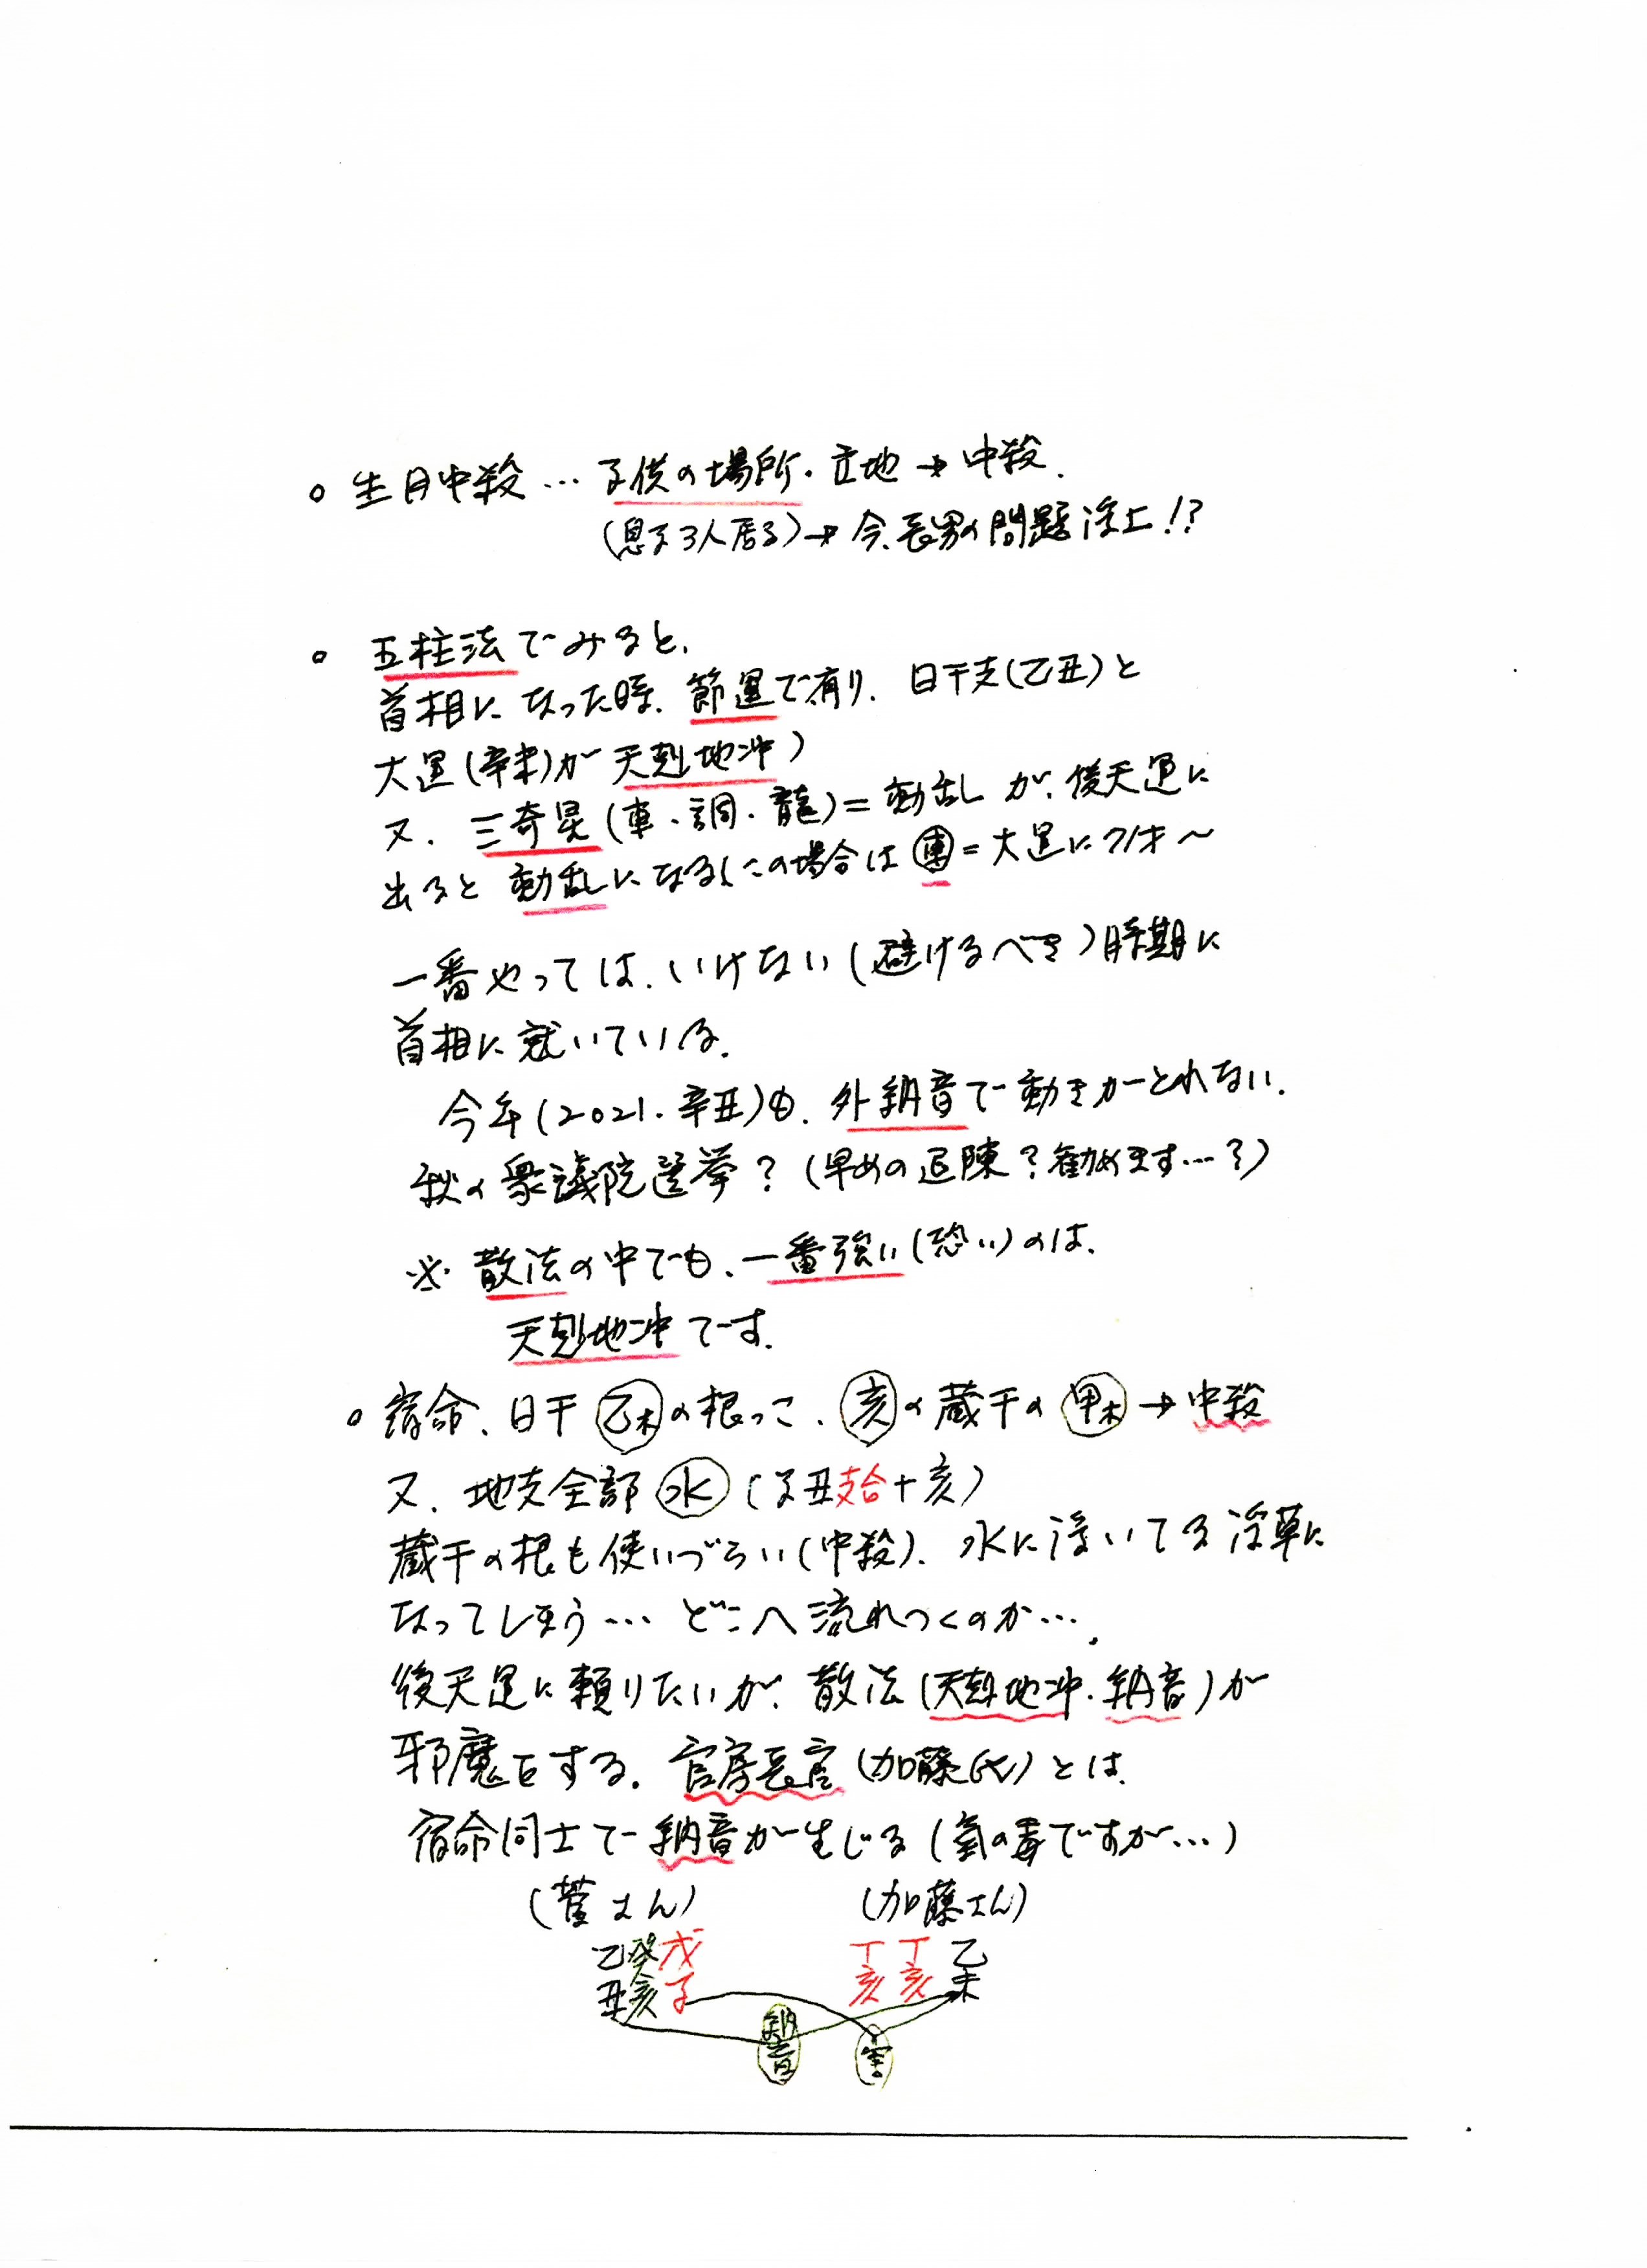 ○ 生月中殺… 子供の場所・立地→中殺.
(息子3人居る)→今.長男の問題浮上!?
○ 五柱法でみると、
首相になった時.節運で有り.日干支(乙丑)と
大運(辛未)が天剋地冲)
又.三奇星(車・調・龍)=動乱が、後天運に
出ると動乱になる(この場合は車=大運に71才〜
一番やっては、いけない(避けるべき)時期に
首相に就いている.
今年(2021.辛丑)も.外納音で動きがとれない.
秋の衆議院選挙?(早めの退陳?勧めます…?)
※散法の中でも、一番強い(恐い)のは、
天剋地冲です.
○ 宿命、日干乙木の根っこ、亥の蔵干の甲木→中殺
又.地支全部水(子丑支合+亥)
蔵干の根も使いづらい(中殺).水に浮いてる浮草に
なってしまう…どこへ流れつくのか….
後天運に頼りたいが、散法(天剋地冲・納音)が
邪魔をする.官房長官(加藤氏)とは、
宿命同士で納音が生じる(氣の毒ですが…)
(菅さん) (加藤さん)
乙癸戊 丁丁乙
丑亥子 亥亥未
納音 害